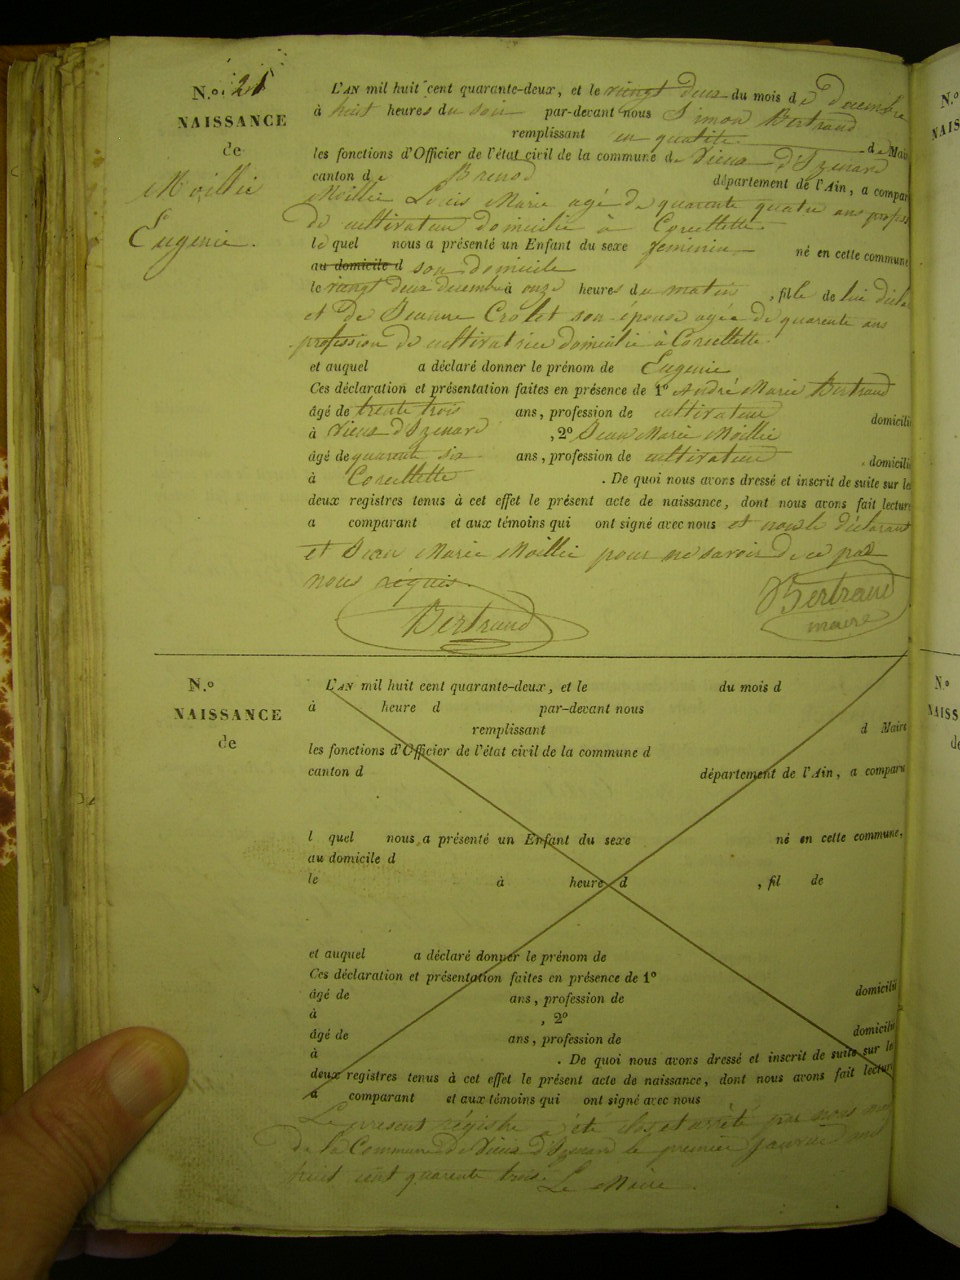 N.º 21
NAISSANCE
de
Moillie
Eugenie.
L'AN mil huit cent quarante-deux, et le vingt deux du mois de Decembre
à huit heures du soir par-devant nous Simon Bertrand
remplissant en qualité de Maire
les fonctions d'Officier de l'état civil de la commune de Vieux d'Izenave
canton de Brenod département de l'Ain, a comparu
Moillie Louis Marie agé de quarente quatre ans profess
de cultivateur domicilié à Corcellette
le quel nous a présenté un Enfant du sexe feminin né en cette commune
au domicile d son domicile
le vingt deux decembre à onze heures du matin, fille de lui
et de Jeanne Crolet son épouse agée de quarente ans
profession de cultivatrice domicilié à Corcellette.
et auquel a déclaré donner le prénom de Eugenie
Ces déclaration et présentation faites en présence de 1º André Marie Bertrand
âgé de trente trois ans, profession de cultivateur domicilié
à Vieux d'Izenave, 2º Jean Marie Moillie
âgé de quarente six ans, profession de cultivateur, domicilié
à Corcellette. De quoi nous avons dressé et inscrit de suite sur les
deux registres tenus à cet effet le présent acte de naissance, dont nous avons fait lecture
a comparant et aux témoins qui ont signé avec nous et non le déclarant
et Jean Marie Moillie pour ne savoir de ce par
nous réquis.
Bertrand
Bertrand
maire
N.º
NAISSANCE
de
L'AN mil huit cent quarante-deux, et le du mois d
à heure d par-devant nous
remplissant d Maire
les fonctions d'Officier de l'état civil de la commune d
canton d département de l'Ain, a comparu
l quel nous a présenté un Enfant du sexe né en cette commune,
au domicile d
le à heure d , fil de
et auquel a déclaré donner le prénom de
Ces déclaration et présentation faites en présence de 1º
âgé de ans, profession de domicilié
à , 2º
âgé de ans, profession de domicilié
à . De quoi nous avons dressé et inscrit de suite sur les
deux registres tenus à cet effet le présent acte de naissance, dont nous avons fait lecture
a comparant et aux témoins qui ont signé avec nous
Le present régistre a été clos et arrêté par nous
de la Commune de Vieux d'Izenave le premier janvier mil
huit cent quarente trois. Le Maire.